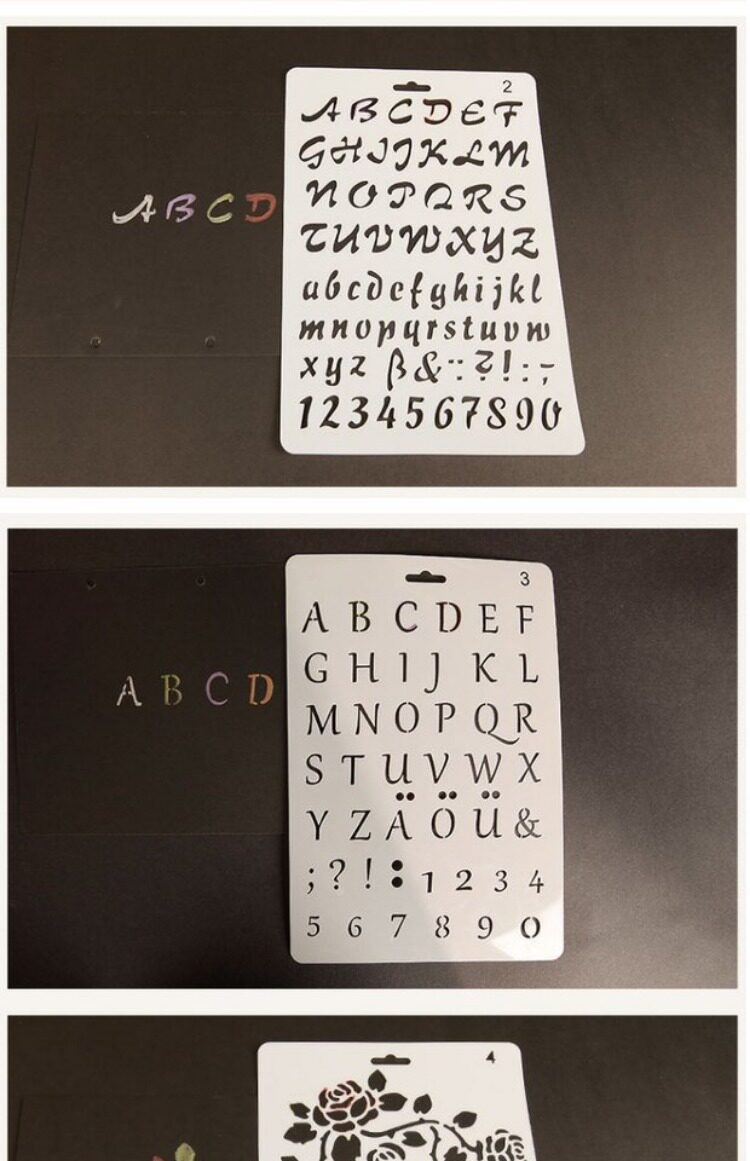 2
ABCDEF
GHIJKLM
NOPQRS
TUVWXYZ
abcdefghijkl
mnopqrstuvw
xyz ß&¨?!:;-
1234567890
ABCD
3
A B C D E F
G H I J K L
M N O P Q R
S T U V W X
Y Z Ä Ö Ü &
; ? ! : 1 2 3 4
5 6 7 8 9 0
A B C D
4